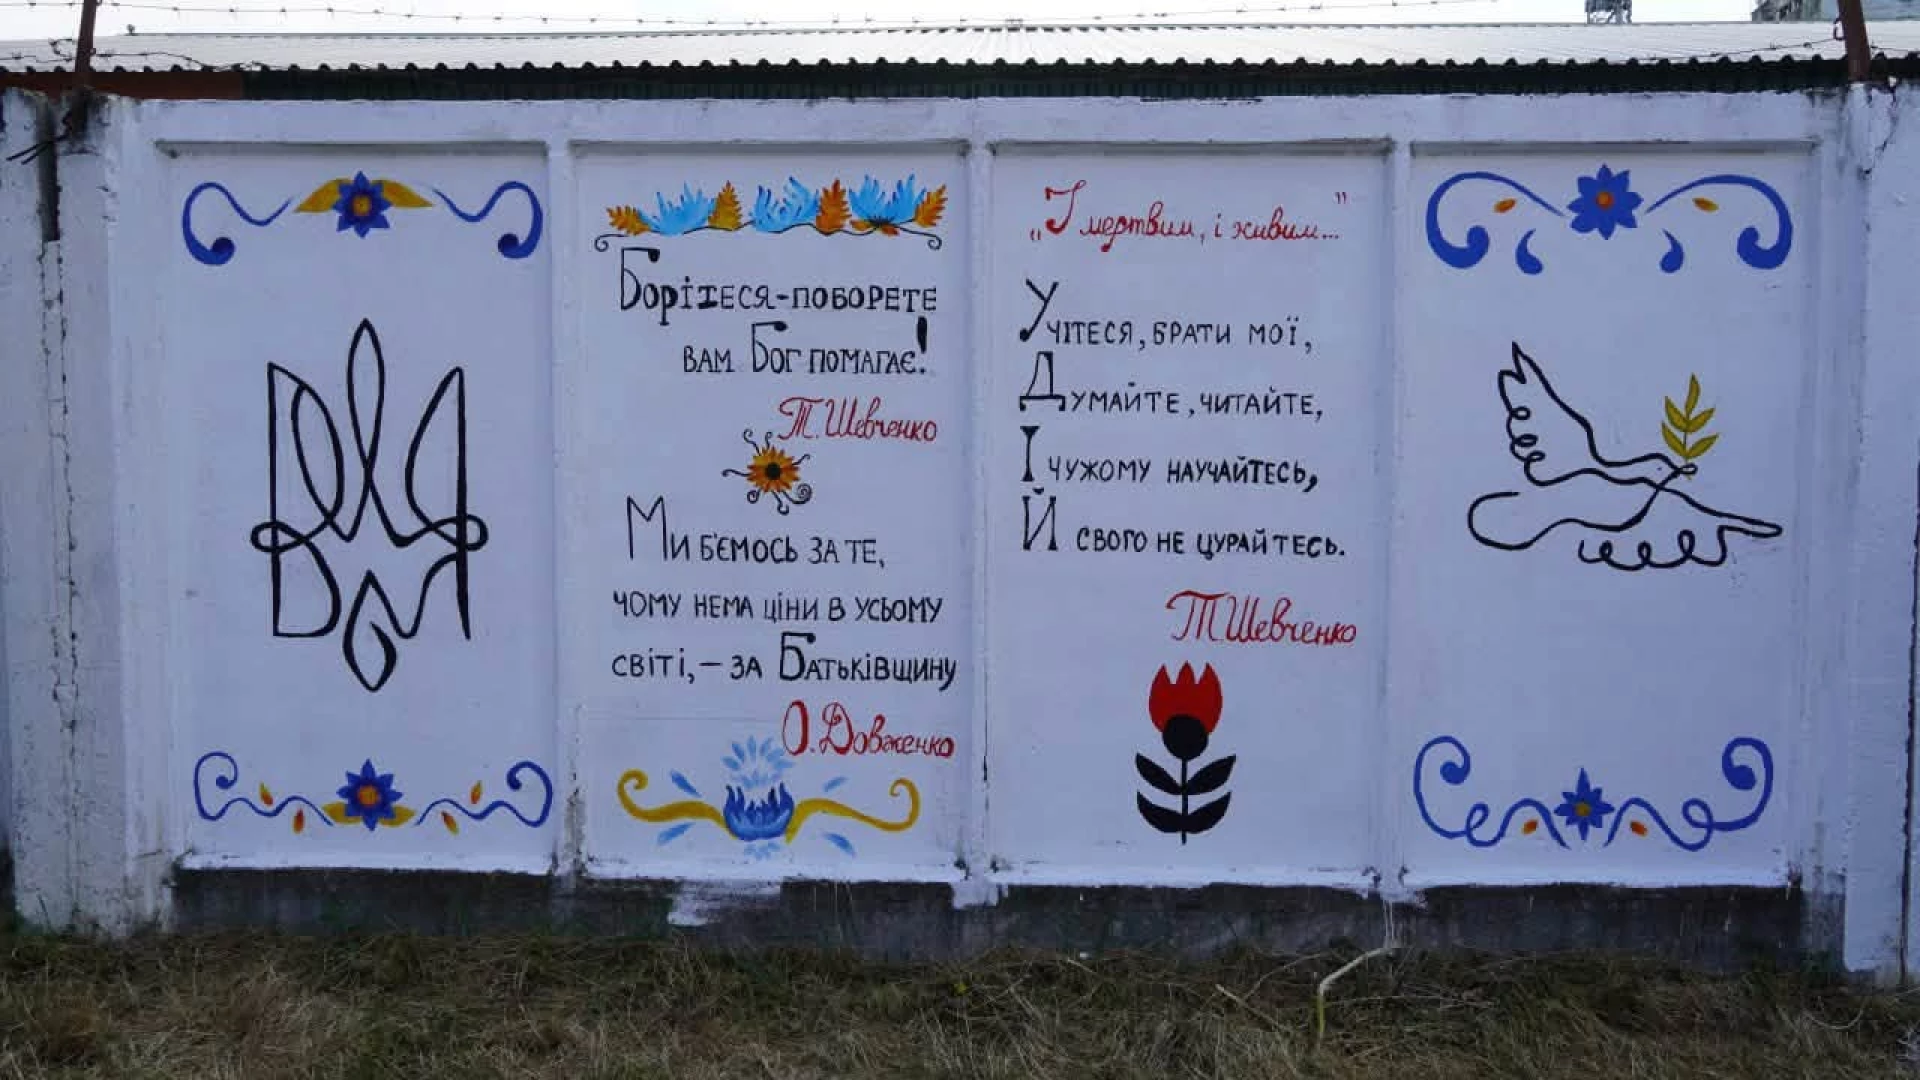 Борітеся-поборете
вам Бог помагає!
Т. Шевченко
Ми б'ємось за те,
чому нема ціни в усьому
світі, – за Батьківщину
О. Довженко
„І мертвим, і живим..."
Учітеся, брати мої,
Думайте, читайте,
І чужому научайтесь,
Й свого не цурайтесь.
Т. Шевченко